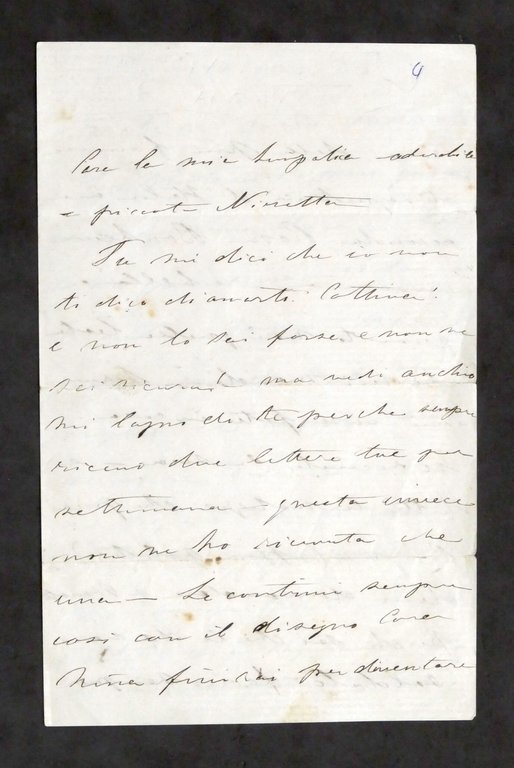 4
Cara la mia simpatica adorabile
e Ninetta
Tu mi dici che io non
ti dico di amarti. Cattiva!
e non lo sai forse, e non ne
sei sicura! ma vedi anch'io
mi lagno di te perche sempre
ricevo due lettere tue per
settimana questa invece
non ne ho ricevuta che
una — Se continui sempre
così con il disegno Cara
Nina finirai per diventare